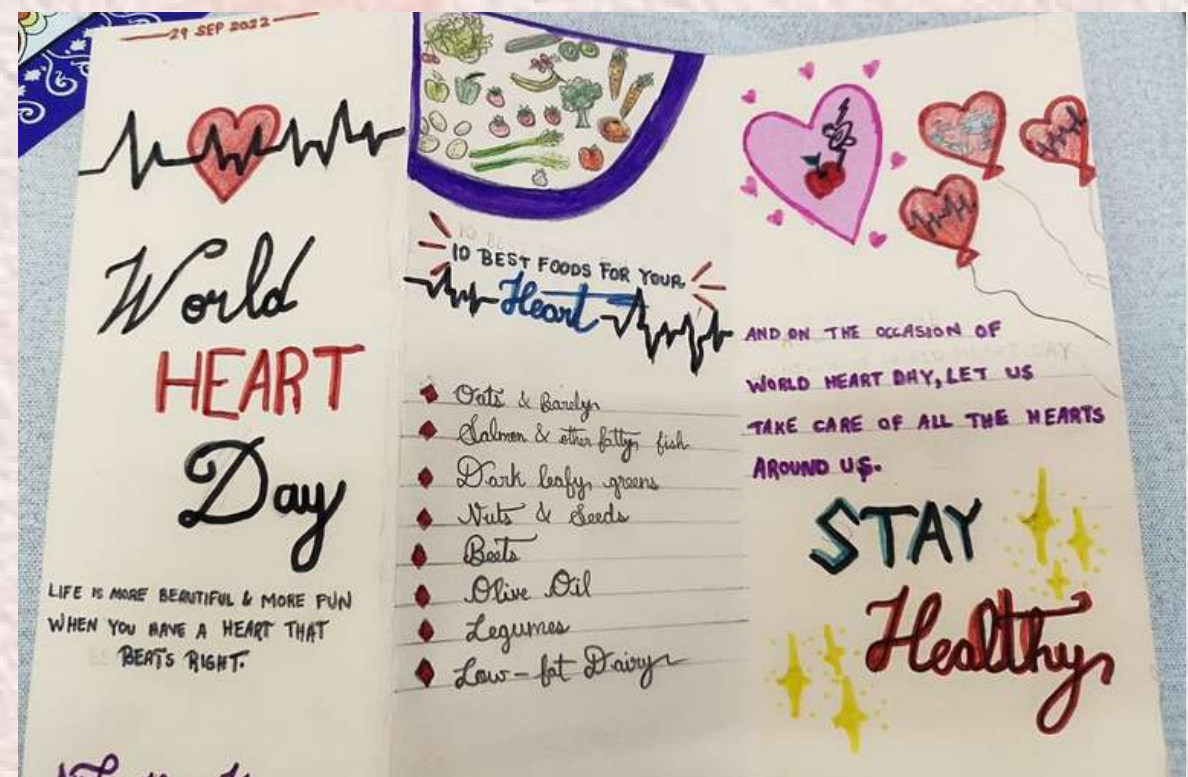 29 SEP 2022
World
HEART
Day
LIFE IS MORE BEAUTIFUL & MORE FUN
WHEN YOU HAVE A HEART THAT
BEATS RIGHT.
10 BEST FOODS FOR YOUR
Heart
Oats & Barely
Salmon & other fatty fish
Dark leafy greens
Nuts & Seeds
Beets
Olive Oil
Legumes
Low-fat Dairy
AND ON THE OCCASION OF
WORLD HEART DAY, LET US
TAKE CARE OF ALL THE HEARTS
AROUND US.
STAY
Healthy